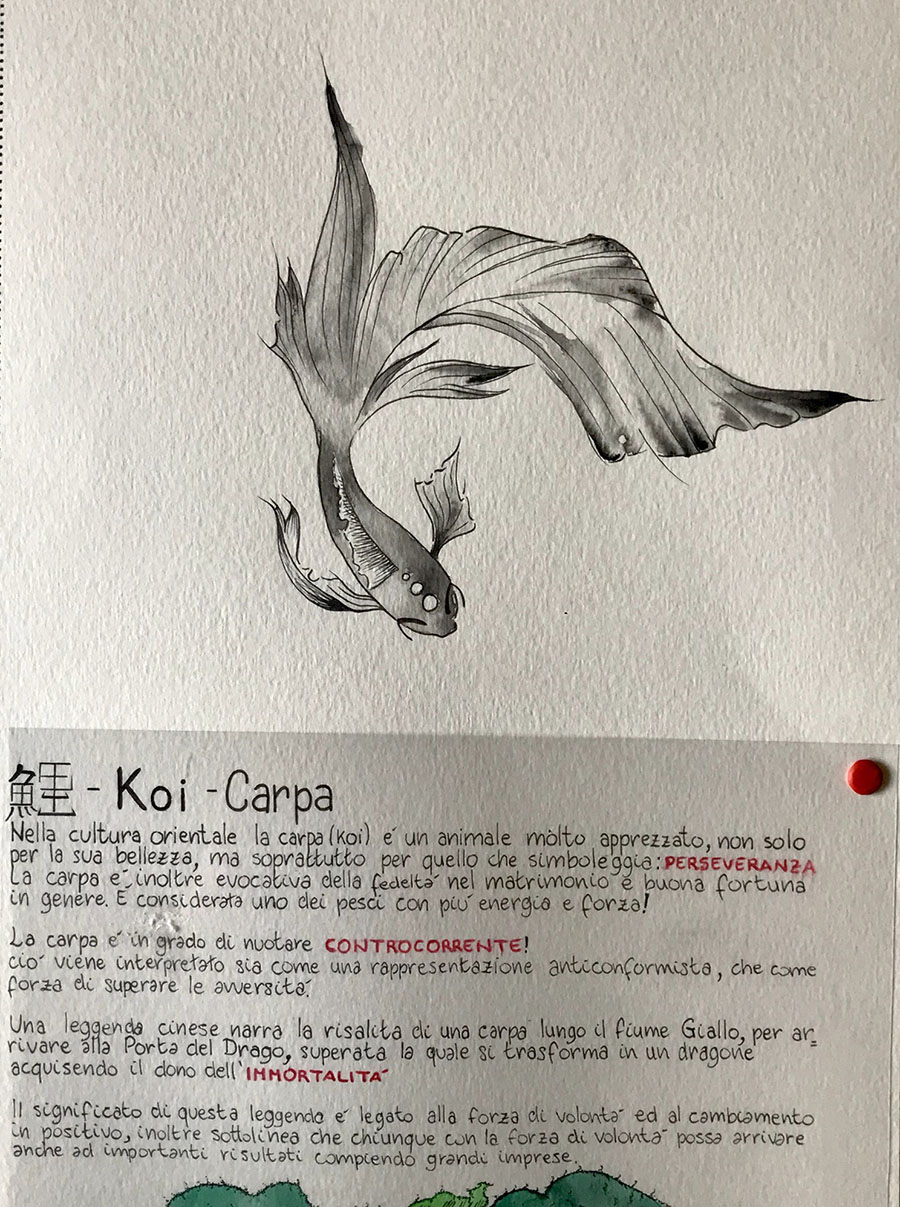 鯉 - Koi - Carpa
Nella cultura orientale la carpa (Koi) é un animale molto apprezzato, non solo
per la sua bellezza, ma soprattutto per quello che simboleggia: PERSEVERANZA
La carpa é inoltre evocativa della fedeltá nel matrimonio e buona fortuna
in genere. E considerata uno dei pesci con piú energia e forza!
La carpa é in grado di nuotare CONTROCORRENTE!
ció viene interpretato sia come una rappresentazione anticonformista, che come
forza di superare le avversitá.
Una leggenda cinese narra la risalita di una carpa lungo il fiume Giallo, per ar=
rivare alla Porta del Drago, superata la quale si trasforma in un dragone
acquisendo il dono dell'IMMORTALITA'
Il significato di questa leggenda é legato alla forza di volontá ed al cambiamento
in positivo, inoltre sottolinea che chiunque con la forza di volontá possa arrivare
anche ad importanti risultati compiendo grandi imprese.